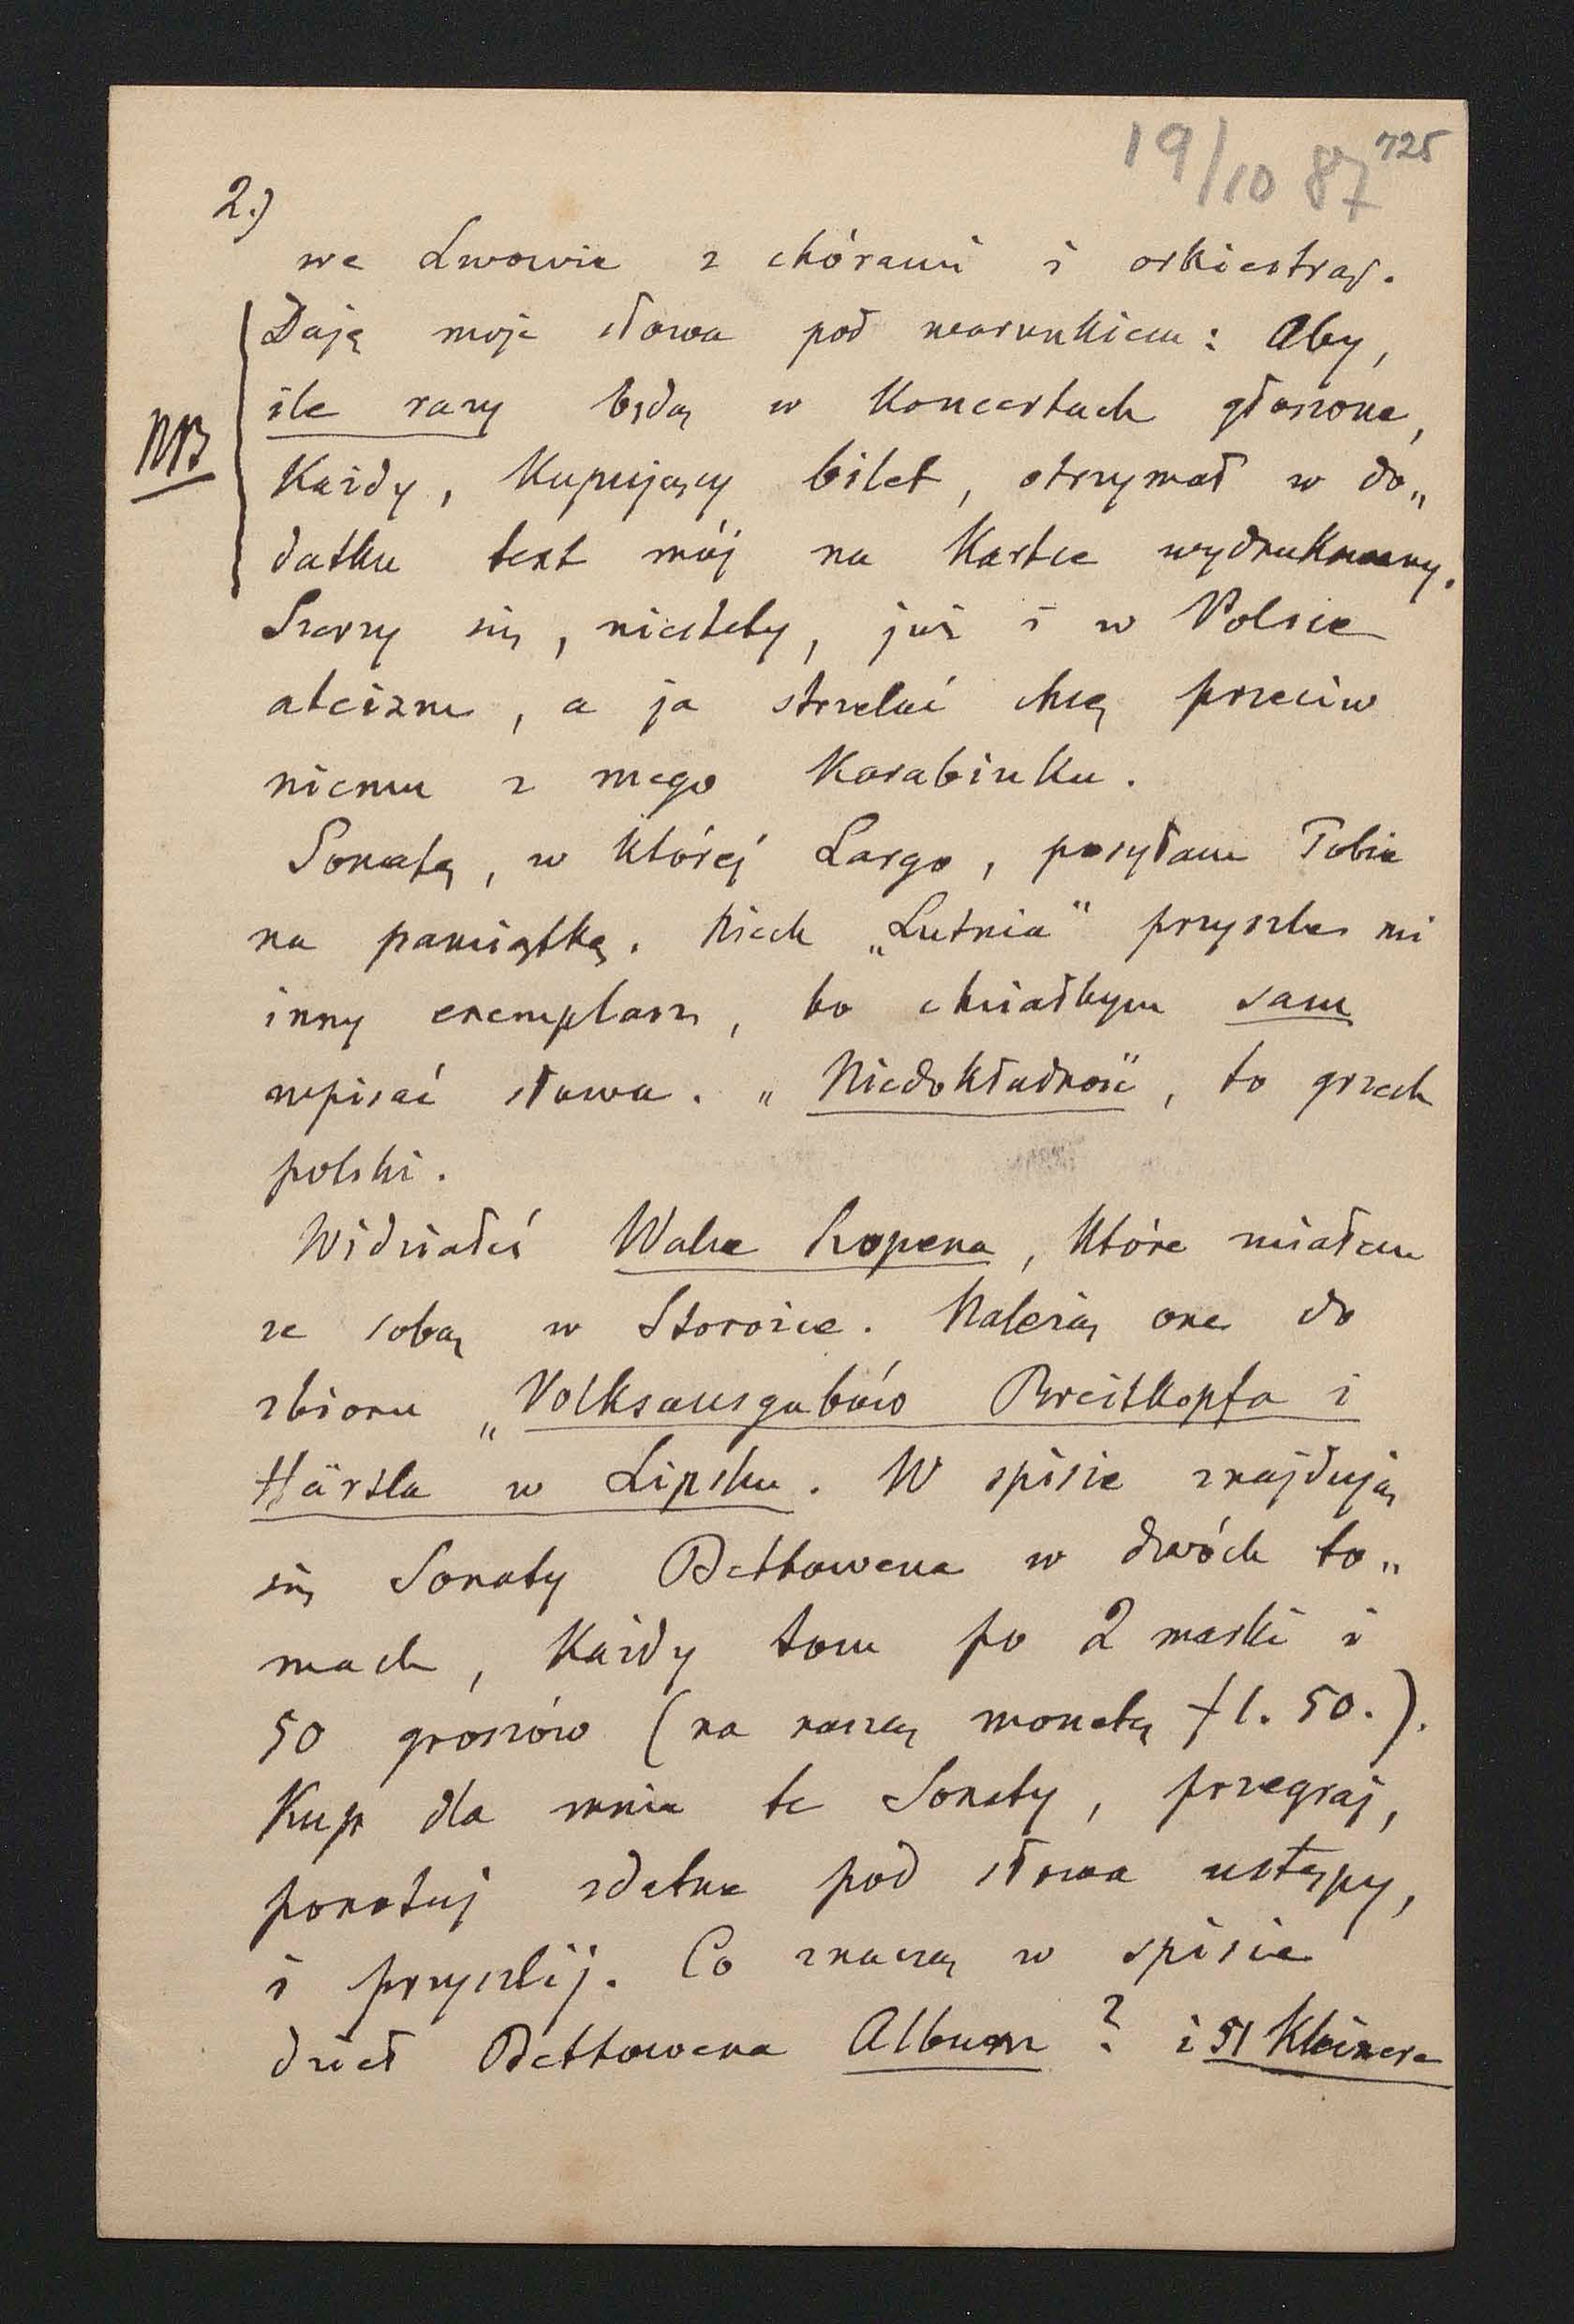 19/10 87
725
2.)
we Lwowie z chórami i orkiestrą.
Daję moje słowa pod warunkiem: Aby,
ile razy będą w Koncertach głoszone,
NB
Każdy, Kupujący bilet, otrzymał w do„
datku text mój na Kartce wydrukowany.
Szerzy się, niestety, już i w Polsce
ateizm, a ja strzelać chcę przeciw
niemu z mego Karabinku.
Sonatę, w której Largo, posyłam Tobie
na pamiątkę. Niech „Lutnia" przyszle mi
inny exemplarz, bo chciałbym sam
wpisać słowa. „Niedokładność", to grzech
polski.
Widziałeś Walce Szopena, Które miałem
ze sobą w Storożce. Należą one do
zbioru „Volksausgabów Breitkopfa i
Härtla w Lipsku. W spisie znajdują
się Sonaty Bethowena w dwóch to„
mach, Każdy tom po 2 marki i
50 groszów (na naszą monetę fl. 50.).
Kup dla mnie te Sonaty, przegraj,
ponotuj zdatne pod słowa ustępy,
i przyszlij. Co znaczą w spisie
dzieł Bethowena Album? i 51 Kleinere